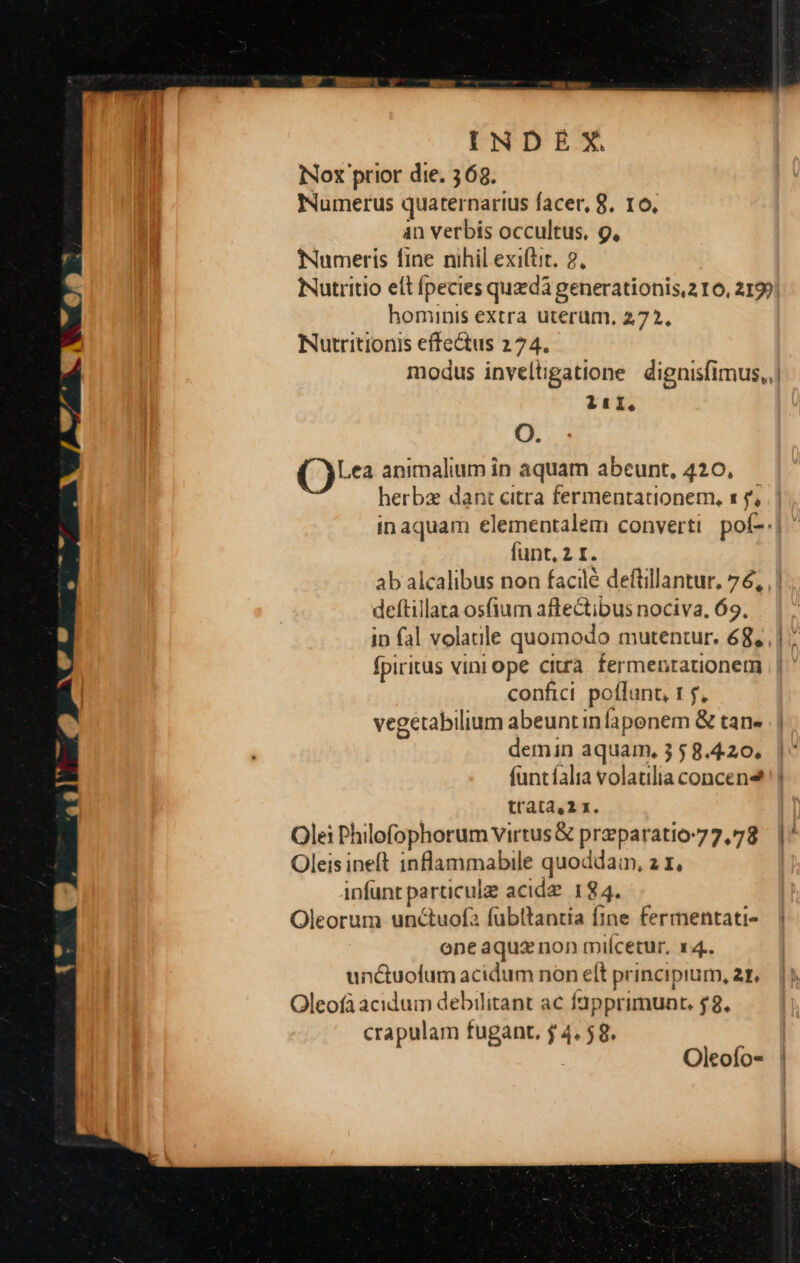 INDEX.
Nox prior die. 368.
Numerus quaternarius ſacer, 8. 10,
an verbis occultus, 9,
Numeris ſine nihil exiſtit. 8,
Nutritio eſt ſpecies quædã generationis, 210, 219
hominis extra uterum, 272,
Nutritionis effectus 274.
modus inveſtigatione digniſſimus,
211,
O.
OLea animalium in aquam abeunt, 420,
herbæ dant citra fermentationem, 15,
in aquam elementalem converti poſ-
ſunt, 21.
ab alcalibus non facilè deſtillantur. 76,
deſtillata osſium affectibus nociva, 69,
in ſal volatile quomodo mutentur. 68,
ſpiritus vini ope citra fermentationem
confici poſſunt, 15,
vegetabilium abeunt in ſaponem & tan-
dem in aquam, 358.420,
ſunt ſalia volatilia concen-
trata, 21.
Olei Philoſophorum virtus & præparatio 77.78
Oleis ineſt inflammabile quoddam, 21,
inſunt particulæ acidæ 184.
Oleorum unctuoſa ſubſtantia ſine fermentati-
one aquæ non miſcetur, 14.
unctuoſum acidum non eſt principium, 21,
Oleoſa acidum debilitant ac ſupprimunt. 58.
crapulam fugant. 54. 58.
Oleoſo-